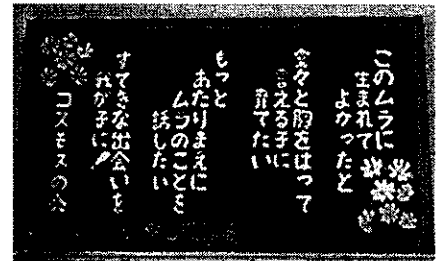 このムラに
生まれて
よかったと
堂々と胸をはって
言える子に
育てたい
もっと
あたりまえに
ムラのことを
話したい
すてきな出会いを
我が子に
コスモスの会